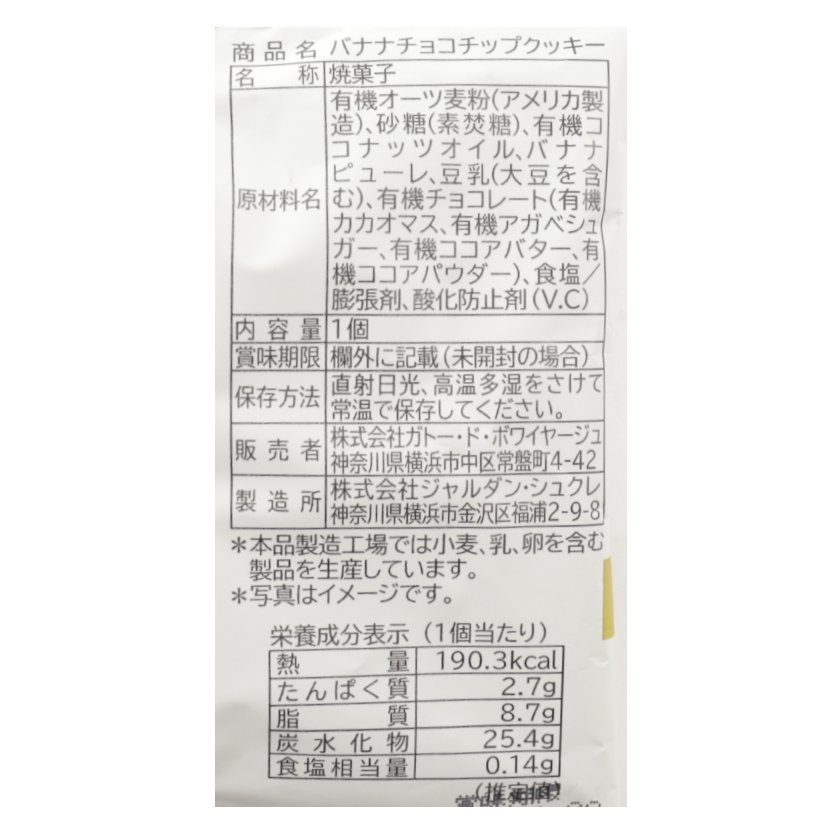 商品名 バナナチョコチップクッキー
名称 焼菓子
原材料名
有機オーツ麦粉(アメリカ製
造)、砂糖(素焚糖)、有機コ
コナッツオイル、バナナ
ピューレ、豆乳(大豆を含
む)、有機チョコレート(有機
カカオマス、有機アガベシュ
ガー、有機ココアバター、有
機ココアパウダー)、食塩/
膨張剤、酸化防止剤(V.C)
内容量 1個
賞味期限 欄外に記載(未開封の場合)
保存方法
直射日光、高温多湿をさけて
常温で保存してください。
販売者
株式会社ガトー・ド・ボワイヤージュ
神奈川県横浜市中区常盤町4-42
製造所
株式会社ジャルダン・シュクレ
神奈川県横浜市金沢区福浦2-9-8
*本品製造工場では小麦、乳、卵を含む
製品を生産しています。
*写真はイメージです。
栄養成分表示(1個当たり)
熱量 190.3kcal
たんぱく質 2.7g
脂質 8.7g
炭水化物 25.4g
食塩相当量 0.14g
(推定値)